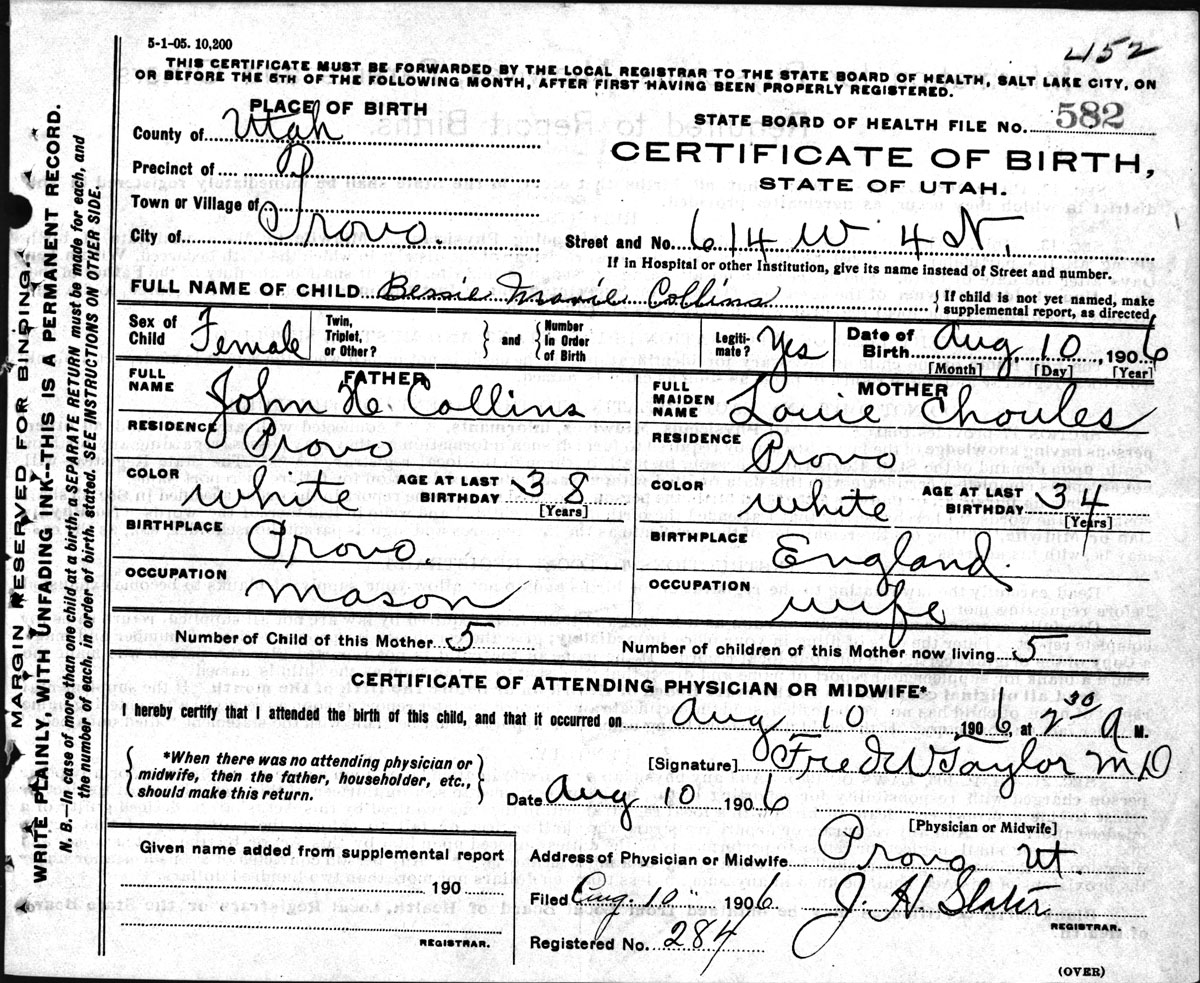 5-1-05. 10,200
452
THIS CERTIFICATE MUST BE FORWARDED BY THE LOCAL REGISTRAR TO THE STATE BOARD OF HEALTH, SALT LAKE CITY, ON
OR BEFORE THE 5TH OF THE FOLLOWING MONTH, AFTER FIRST HAVING BEEN PROPERLY REGISTERED.
PLACE OF BIRTH
County of Utah
STATE BOARD OF HEALTH FILE No. 582
Precinct of
CERTIFICATE OF BIRTH,
STATE OF UTAH.
Town or Village of
City of Provo.
Street and No. 614 W 4 N.
If in Hospital or other Institution, give its name instead of Street and number.
FULL NAME OF CHILD Bessie Marie Collins
{ If child is not yet named, make
supplemental report, as directed
Sex of Child Female
Twin, Triplet, or Other?
} and { Number in Order of Birth
Legiti-mate? Yes
Date of Birth Aug. 10, 1906
[Month] [Day] [Year]
FATHER
FULL NAME John H. Collins
RESIDENCE Provo
COLOR White AGE AT LAST BIRTHDAY 38
[Years]
BIRTHPLACE Provo
OCCUPATION Mason
MOTHER
FULL MAIDEN NAME Louie Choules
RESIDENCE Provo
COLOR White AGE AT LAST BIRTHDAY 34
[Years]
BIRTHPLACE England.
OCCUPATION Wife
Number of Child of this Mother 5
Number of children of this Mother now living 5
CERTIFICATE OF ATTENDING PHYSICIAN OR MIDWIFE*
I hereby certify that I attended the birth of this child, and that it occurred on Aug 10 1906, at 2 30 A M.
{ *When there was no attending physician or
midwife, then the father, householder, etc.,
should make this return. }
[Signature] Fred W Taylor M D
Date Aug 10 1906
[Physician or Midwife]
Given name added from supplemental report
190
REGISTRAR.
Address of Physician or Midwife Provo Ut
Filed Aug. 10 1906 J. H. Slater
REGISTRAR.
Registered No. 284
(OVER)
MARGIN RESERVED FOR BINDING.
WRITE PLAINLY, WITH UNFADING INK--THIS IS A PERMANENT RECORD.
N. B.—In case of more than one child at a birth, a SEPARATE RETURN must be made for each, and
the number of each, in order of birth, stated. SEE INSTRUCTIONS ON OTHER SIDE.